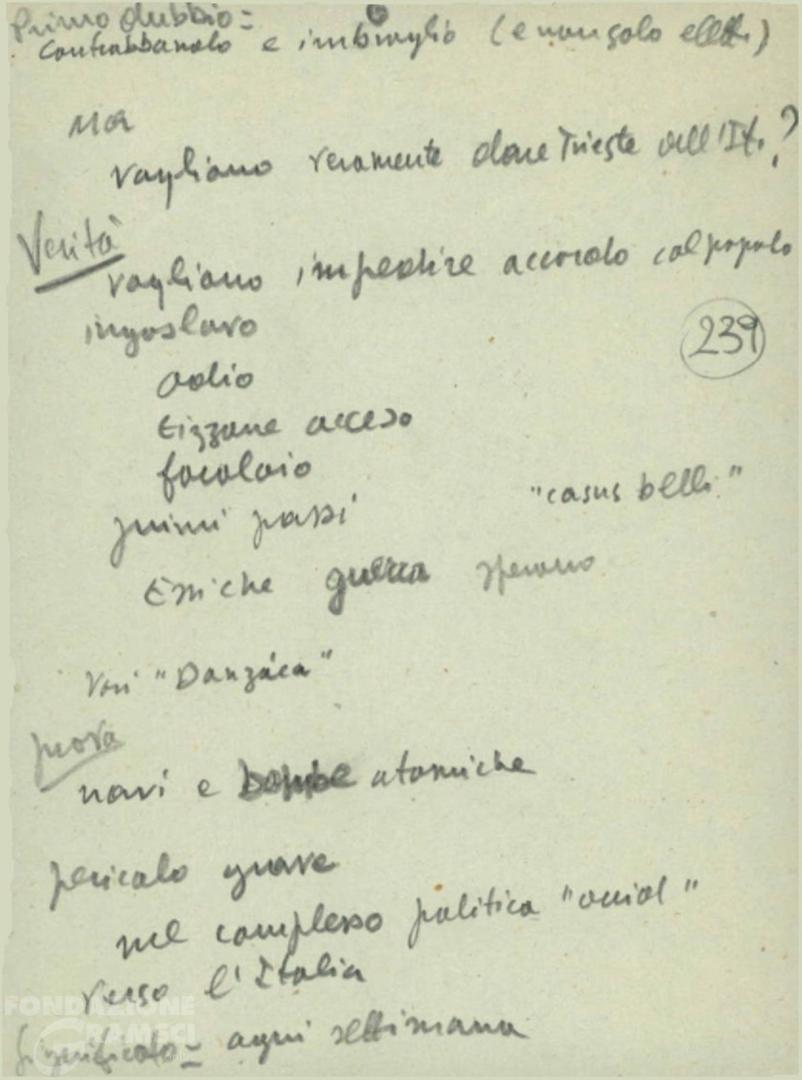 Primo dubbio =
Contrabbando e imbroglio (e non solo elett.)
Ma
vogliono veramente dare Trieste all'It.?
Verità
vogliono impedire accordo col popolo
iugoslavo
239
odio
tizzone acceso
focolaio
primi passi "casus belli"
Essi che guerra sperano
"Danzica"
prova
navi e bombe atomiche
pericolo grave
nel complesso politica "occid"
verso l'Italia
Significato = ogni settimana
FONDAZIONE
GRAMSCI